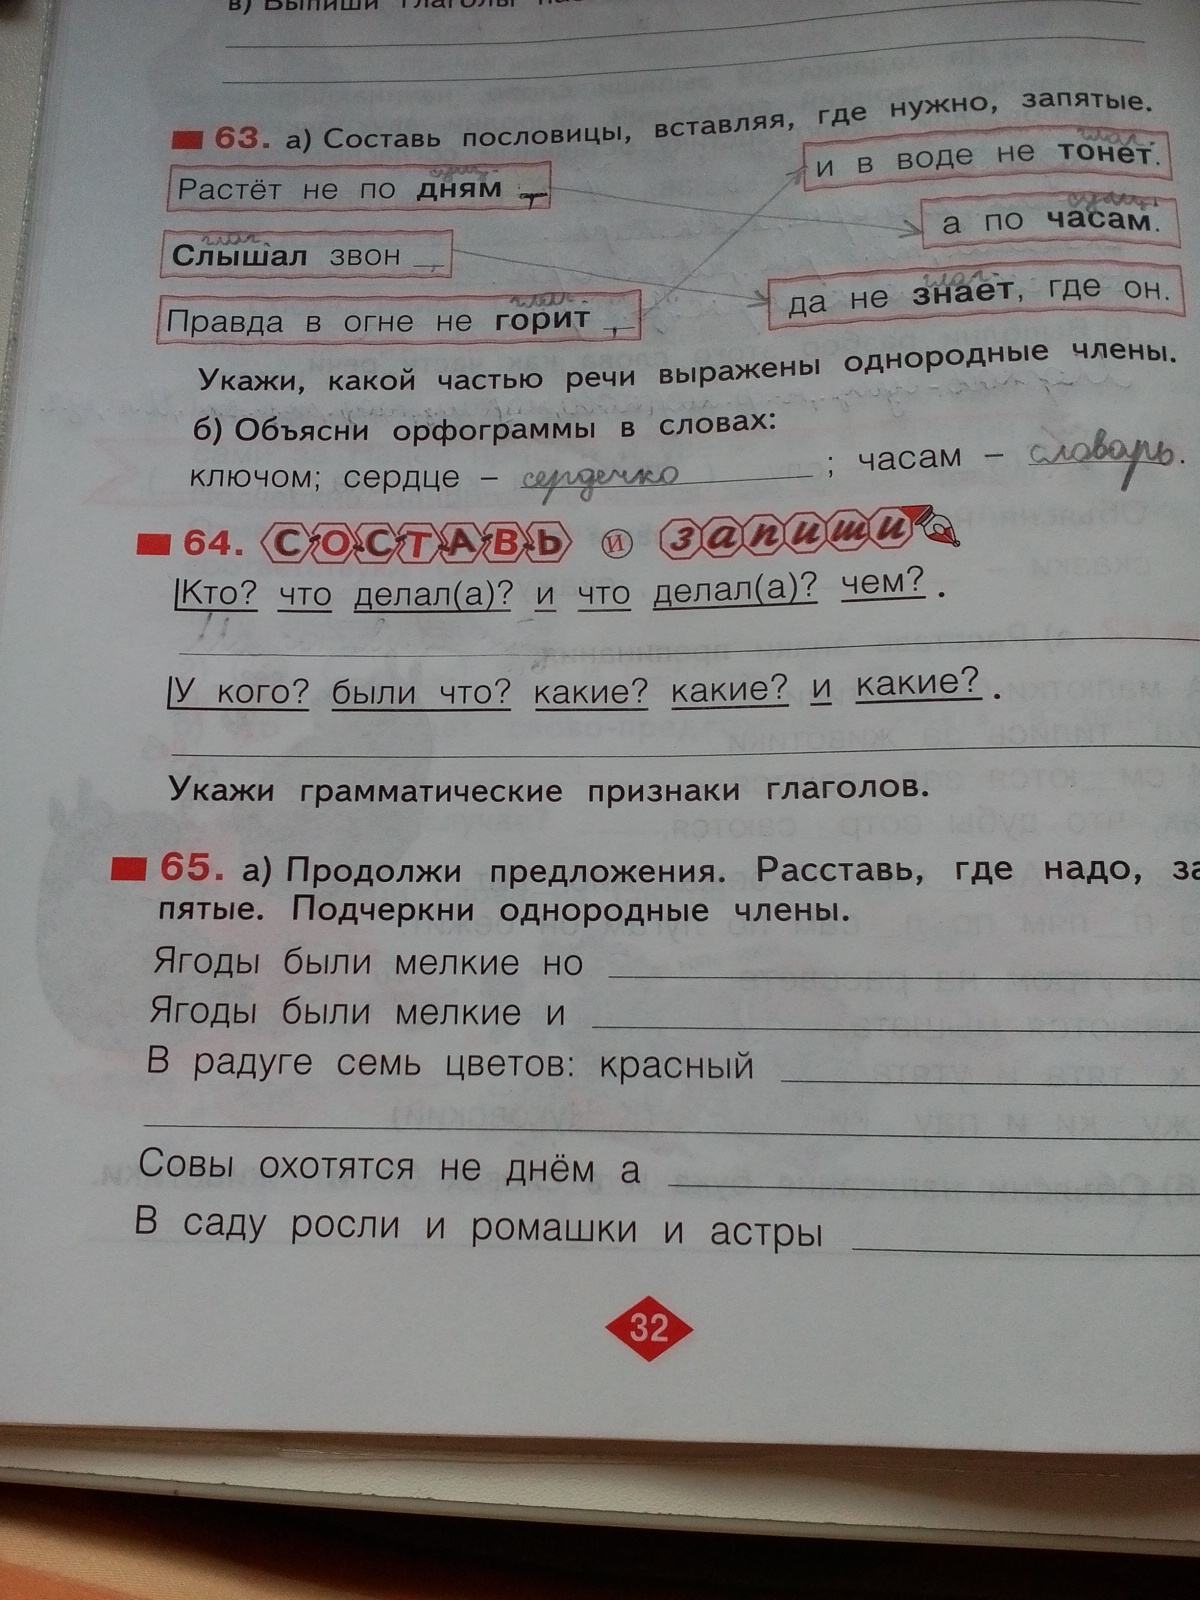 в) Выпиши глаголы
63. а) Составь пословицы, вставляя, где нужно, запятые.
сущ.
Растёт не по дням ,
глаг.
и в воде не тонет.
сущ.
а по часам.
глаг.
Слышал звон ,
глаг.
да не знает, где он.
глаг.
Правда в огне не горит ,
Укажи, какой частью речи выражены однородные члены.
б) Объясни орфограммы в словах:
ключом; сердце – сердечко ; часам – словарь.
64. СОСТАВЬ и запиши
Кто? что делал(а)? и что делал(а)? чем? .
У кого? были что? какие? какие? и какие? .
Укажи грамматические признаки глаголов.
65. а) Продолжи предложения. Расставь, где надо, за
пятые. Подчеркни однородные члены.
Ягоды были мелкие но
Ягоды были мелкие и
В радуге семь цветов: красный
Совы охотятся не днём а
В саду росли и ромашки и астры
32